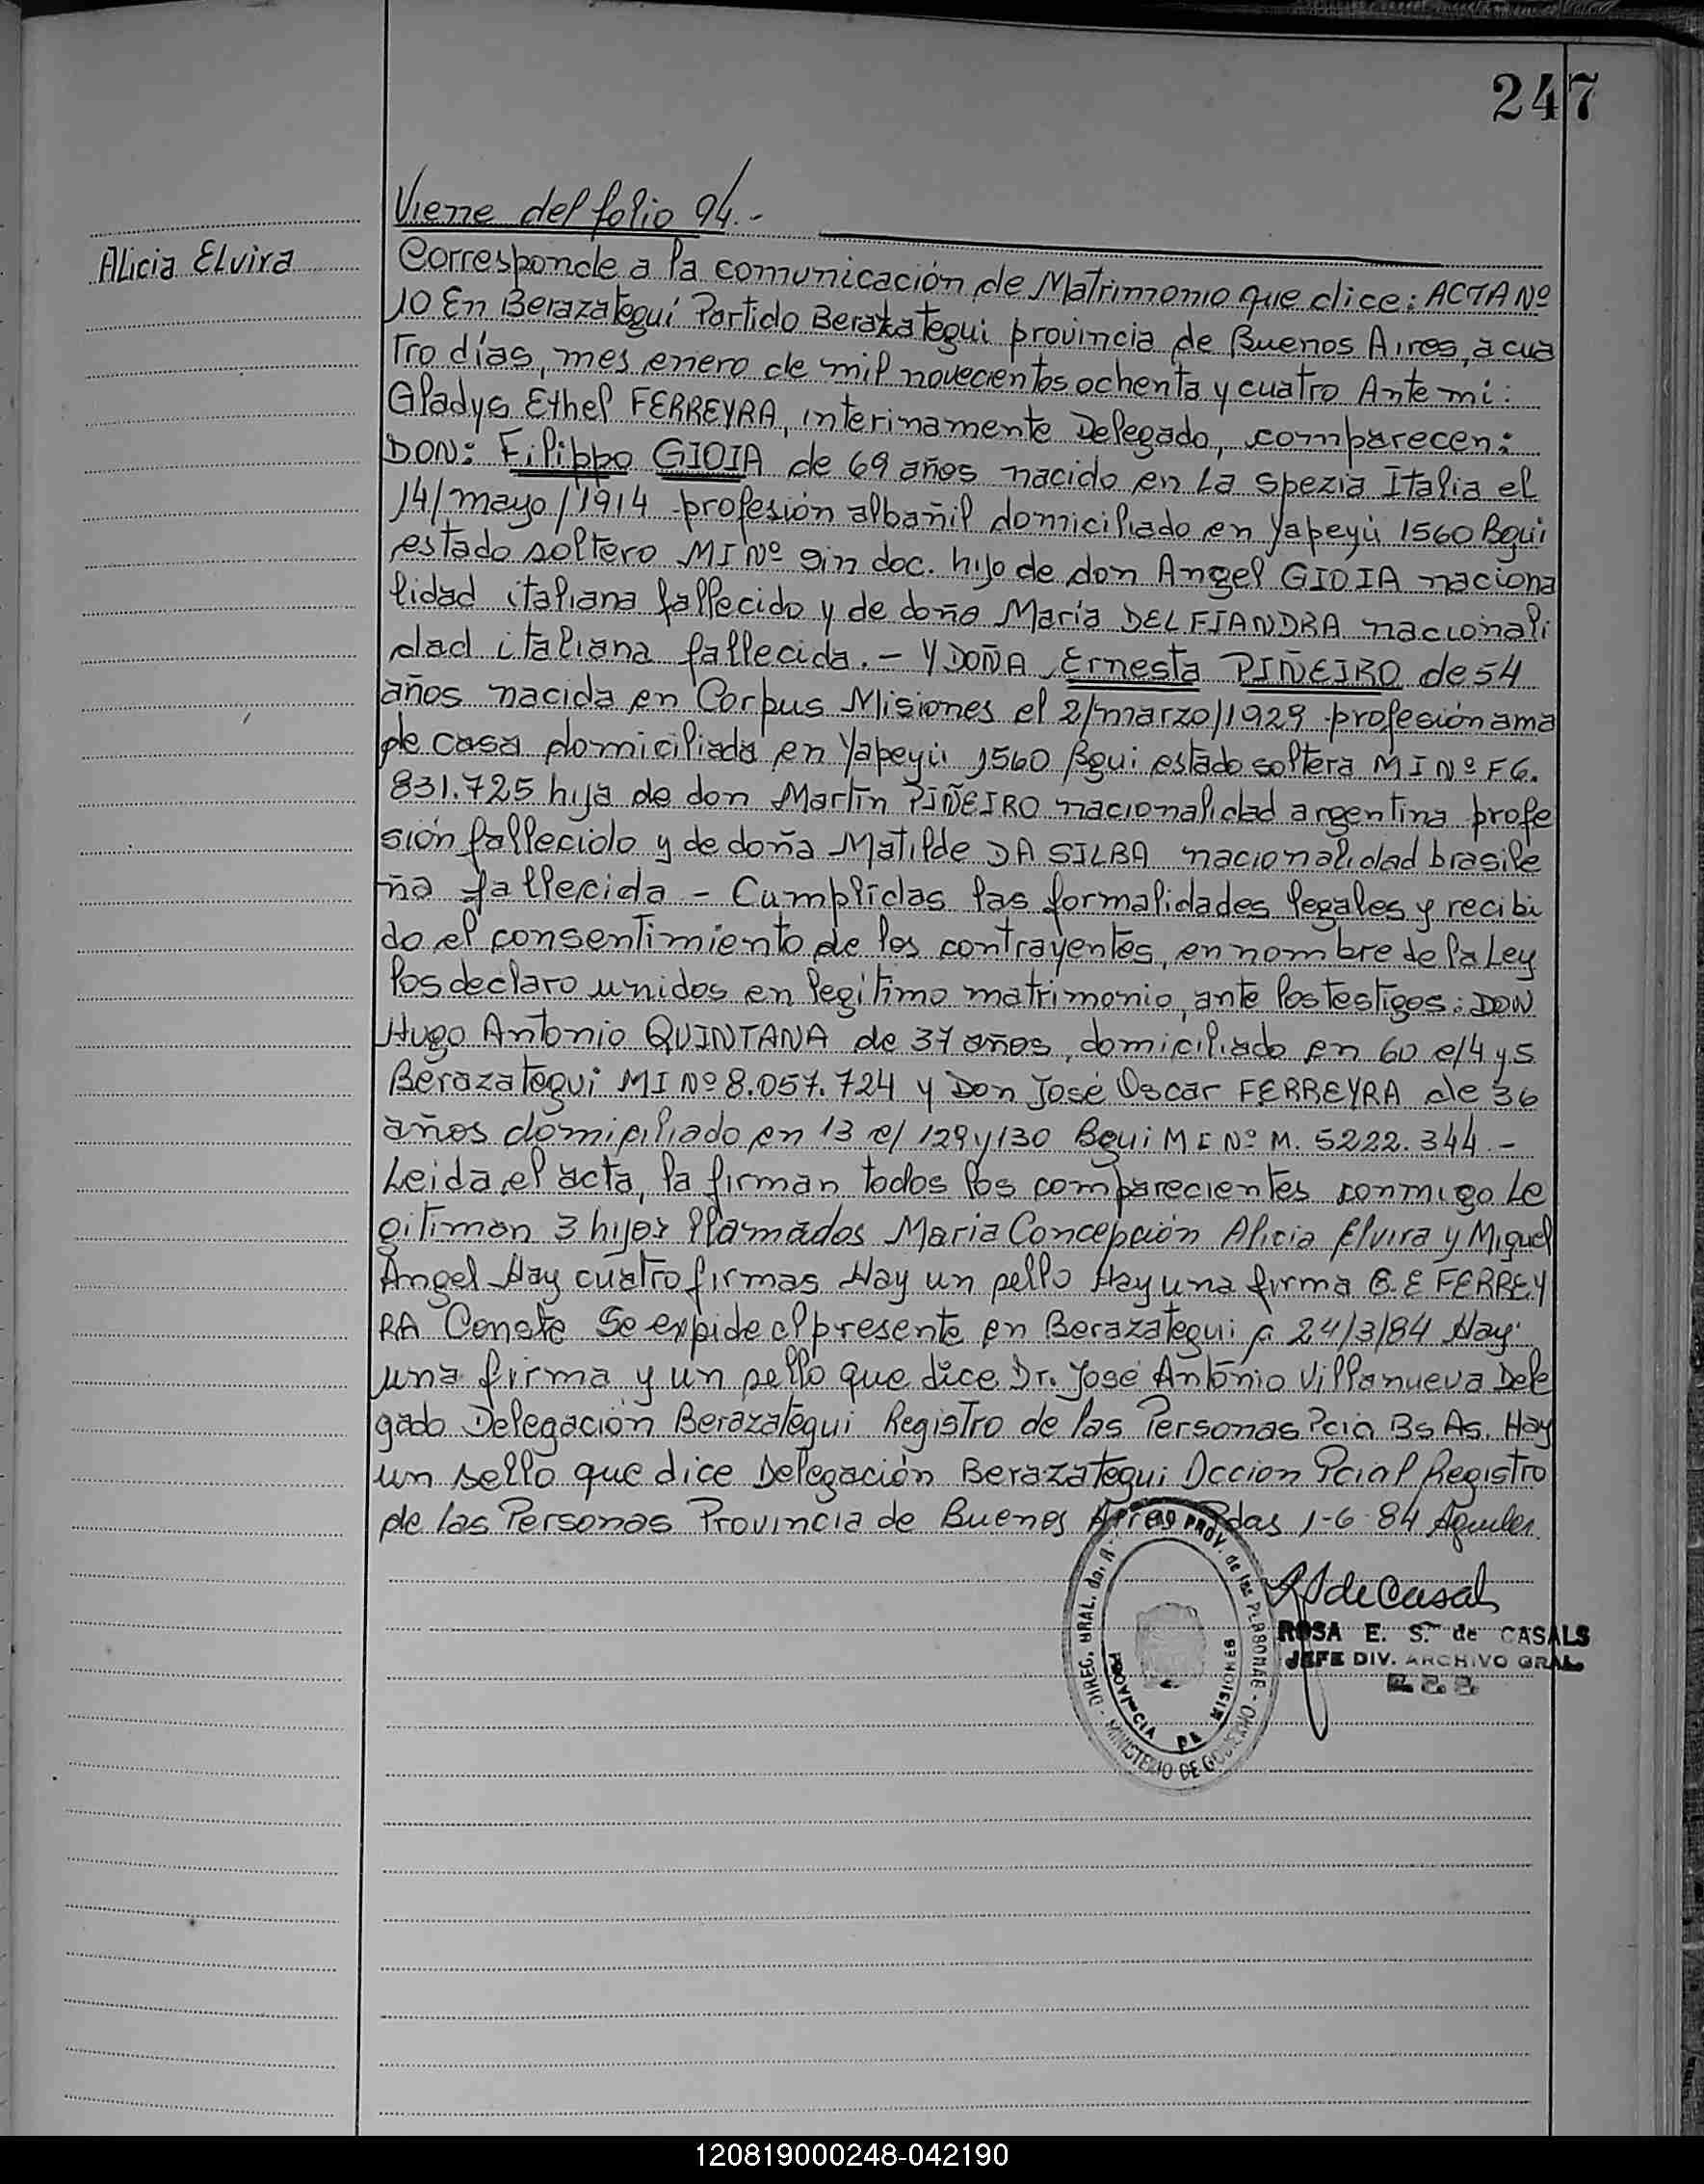 247
Viene del folio 94.-
Alicia Elvira
Corresponde a la comunicación de Matrimonio que dice: ACTA Nº
10 En Berazategui Partido Berazategui provincia de Buenos Aires, a cua
tro días, mes enero de mil novecientos ochenta y cuatro Ante mi:
Gladys Ethel FERREYRA, interinamente Delegado, comparecen:
DON: Filippo GIOIA de 69 años nacido en La Spezia Italia el
14/mayo/1914 profesión albañil domiciliado en Yapeyú 1560 Bgui
estado soltero MI Nº sin doc. hijo de don Angel GIOIA naciona
lidad italiana fallecido y de doña María DELFIANDRA nacionali
dad italiana fallecida.- Y DOÑA Ernesta PIÑEIRO de 54
años nacida en Corpus Misiones el 2/marzo/1929 profesión ama
de casa domiciliada en Yapeyú 1560 Bgui estado soltera MI Nº F6.
831.725 hija de don Martín PIÑEIRO nacionalidad argentina profe
sión fallecido y de doña Matilde DA SILBA nacionalidad brasile
ña fallecida - Cumplidas las formalidades legales y recibi
do el consentimiento de los contrayentes, en nombre de la Ley
los declaro unidos en legítimo matrimonio, ante los testigos: DON
Hugo Antonio QUINTANA de 37 años, domiciliado en 60 e/4 y 5
Berazategui MI Nº 8.057.724 y Don José Oscar FERREYRA de 36
años domiciliado en 13 e/ 129 y 130 Bgui MI Nº M. 5222.344.-
Leida el acta, la firman todos los comparecientes conmigo Le
gitiman 3 hijos llamados Maria Concepción Alicia Elvira y Miguel
Angel Hay cuatro firmas Hay un sello Hay una firma G.E FERREY
RA Conste Se expide el presente en Berazategui a 24/3/84 Hay
una firma y un sello que dice Dr. José Antonio Villanueva Dele
gado Delegación Berazategui Registro de las Personas Pcia Bs As. Hay
un sello que dice Delegación Berazategui Dccion Pcial Registro
de las Personas Provincia de Buenos Aires Pdas 1-6-84
DIREC. GRAL. del PROV. de las PERSONAS - MINISTERIO DE GOBIERNO
PROVINCIA DE MISIONES
ROSA E. S. de CASALS
JEFE DIV. ARCHIVO GRAL.
120819000248-042190